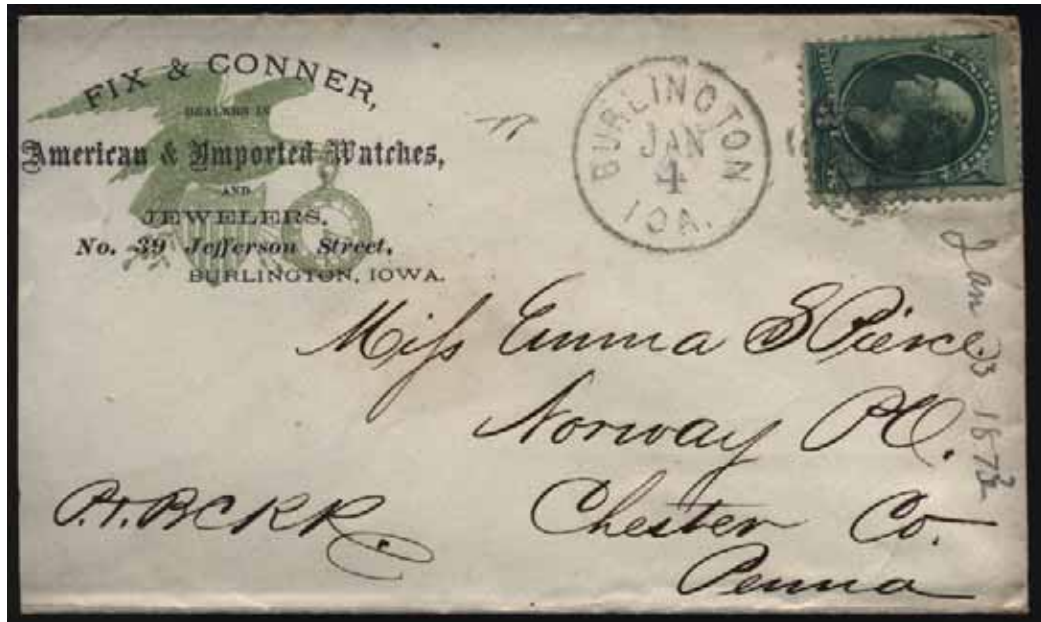 FIX & CONNER,
DEALERS IN
American & Imported Watches,
AND
JEWELERS,
No. 39 Jefferson Street,
BURLINGTON, IOWA.
BURLINGTON
JAN
4
IOA.
Miss Emma S Pierce
Norway PO.
Chester Co.
Penna
P. & B C R R.
Jan 3 1873